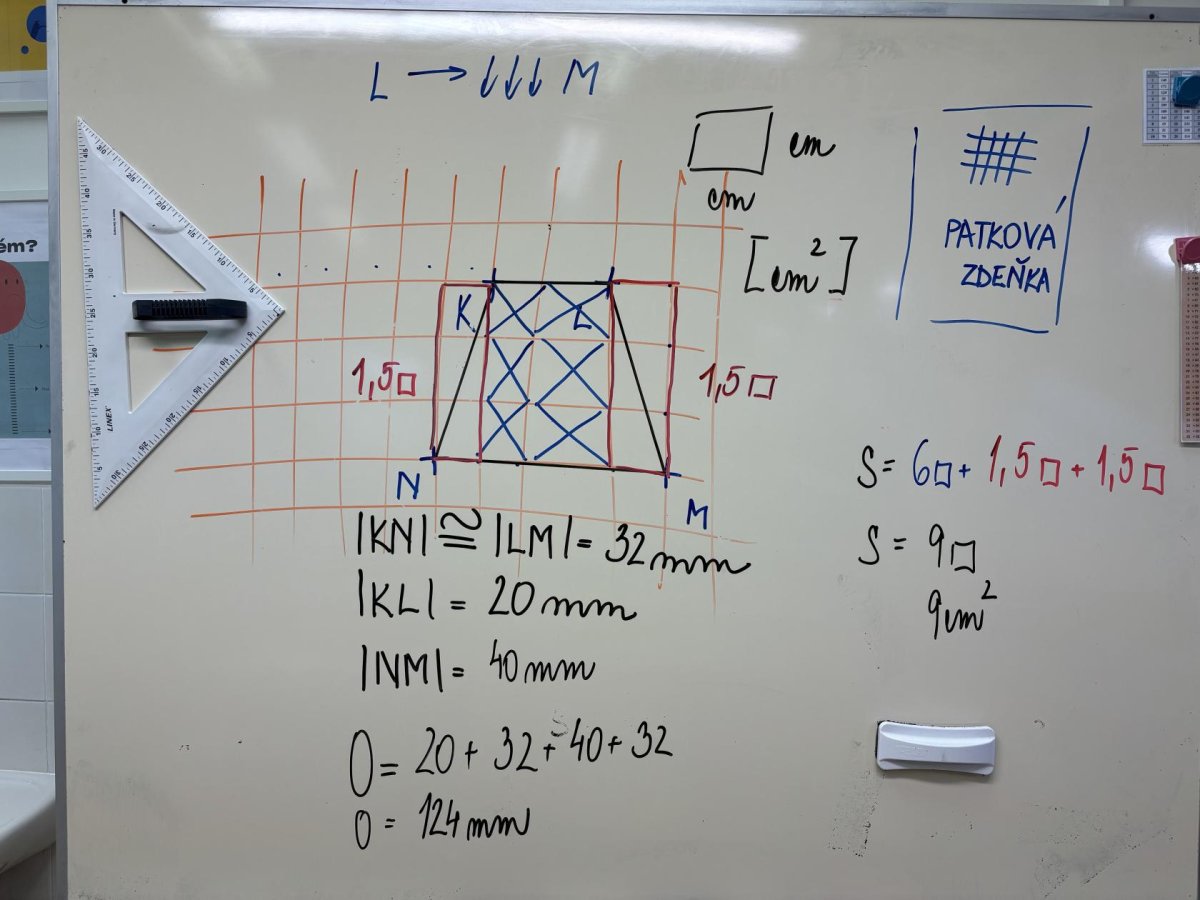 L → ↓↓↓ M
□ cm
cm
[cm²]
PATKOVÁ
ZDEŇKA
ém?
K
L
1,5□
1,5□
N
M
LINEX
|KN| ≅ |LM| = 32 mm
|KL| = 20 mm
|NM| = 40 mm
O = 20 + 32 + 40 + 32
o = 124 mm
S = 6□ + 1,5□ + 1,5□
S = 9□
9cm²